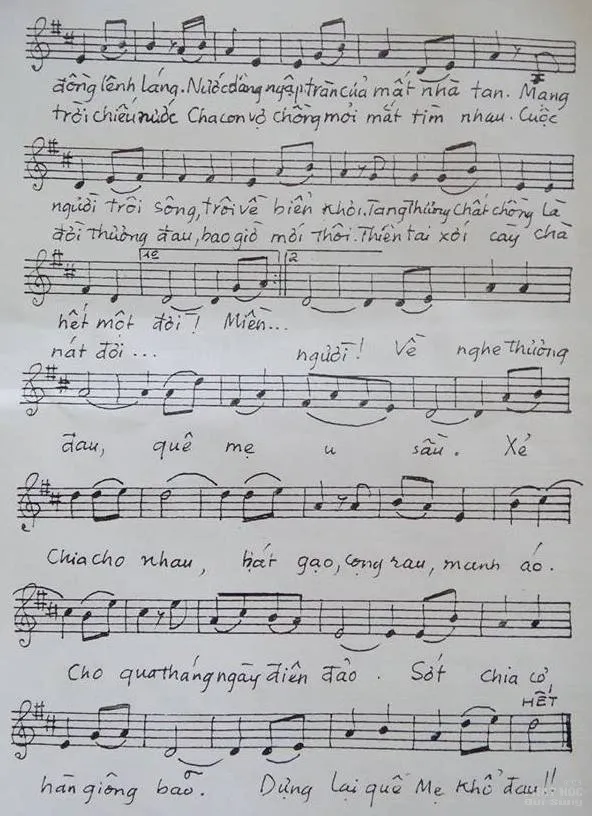 đồng lênh láng. Nước dâng ngập tràn của mất nhà tan. Mang
trời chiếu nước Cha con vợ chồng mỏi mắt tìm nhau. Cuộc
người trôi sông, trôi về biển khơi. Tang thương chất chồng là
đời thương đau, bao giờ mới thôi. Thiên tai xới cày chà
1e 2
hết một đời! Miền...
nát đời... người! Về nghe thương
đau, quê mẹ u sầu. Xẻ
Chia cho nhau, hạt gạo, cọng rau, manh áo.
Cho qua tháng ngày điên đảo. Sớt chia cơ
HẾT
hàn giông bão. Dựng lại quê Mẹ khổ đau!!